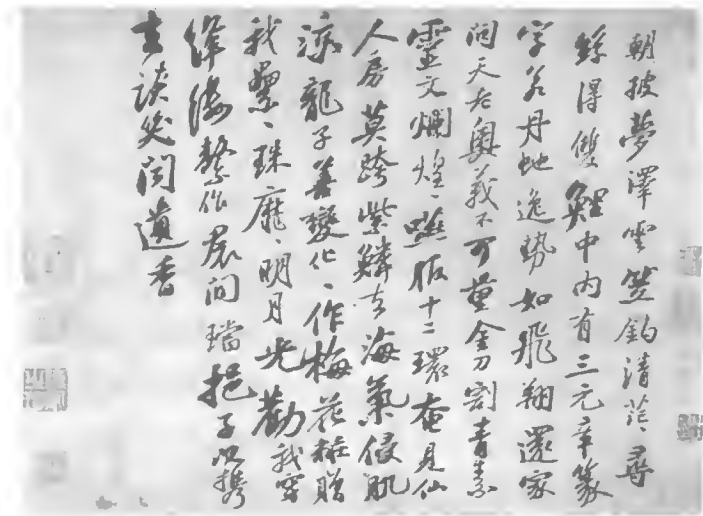 朝披夢澤雲笠釣清茫〻尋
絲得雙鯉中內有三元章篆
字若丹蛇逸勢如飛翔還家
問天老奧義不可量金刀割青素
靈文爛煌〻嚥服十二環奄見仙
人房莫跨紫鱗去海氣侵肌
涼龍子善變化〻作梅花粧贈
我纍〻珠靡〻明月光勸我穿
絳縷繫作裾間璫挹子以攜
去談笑聞遺香